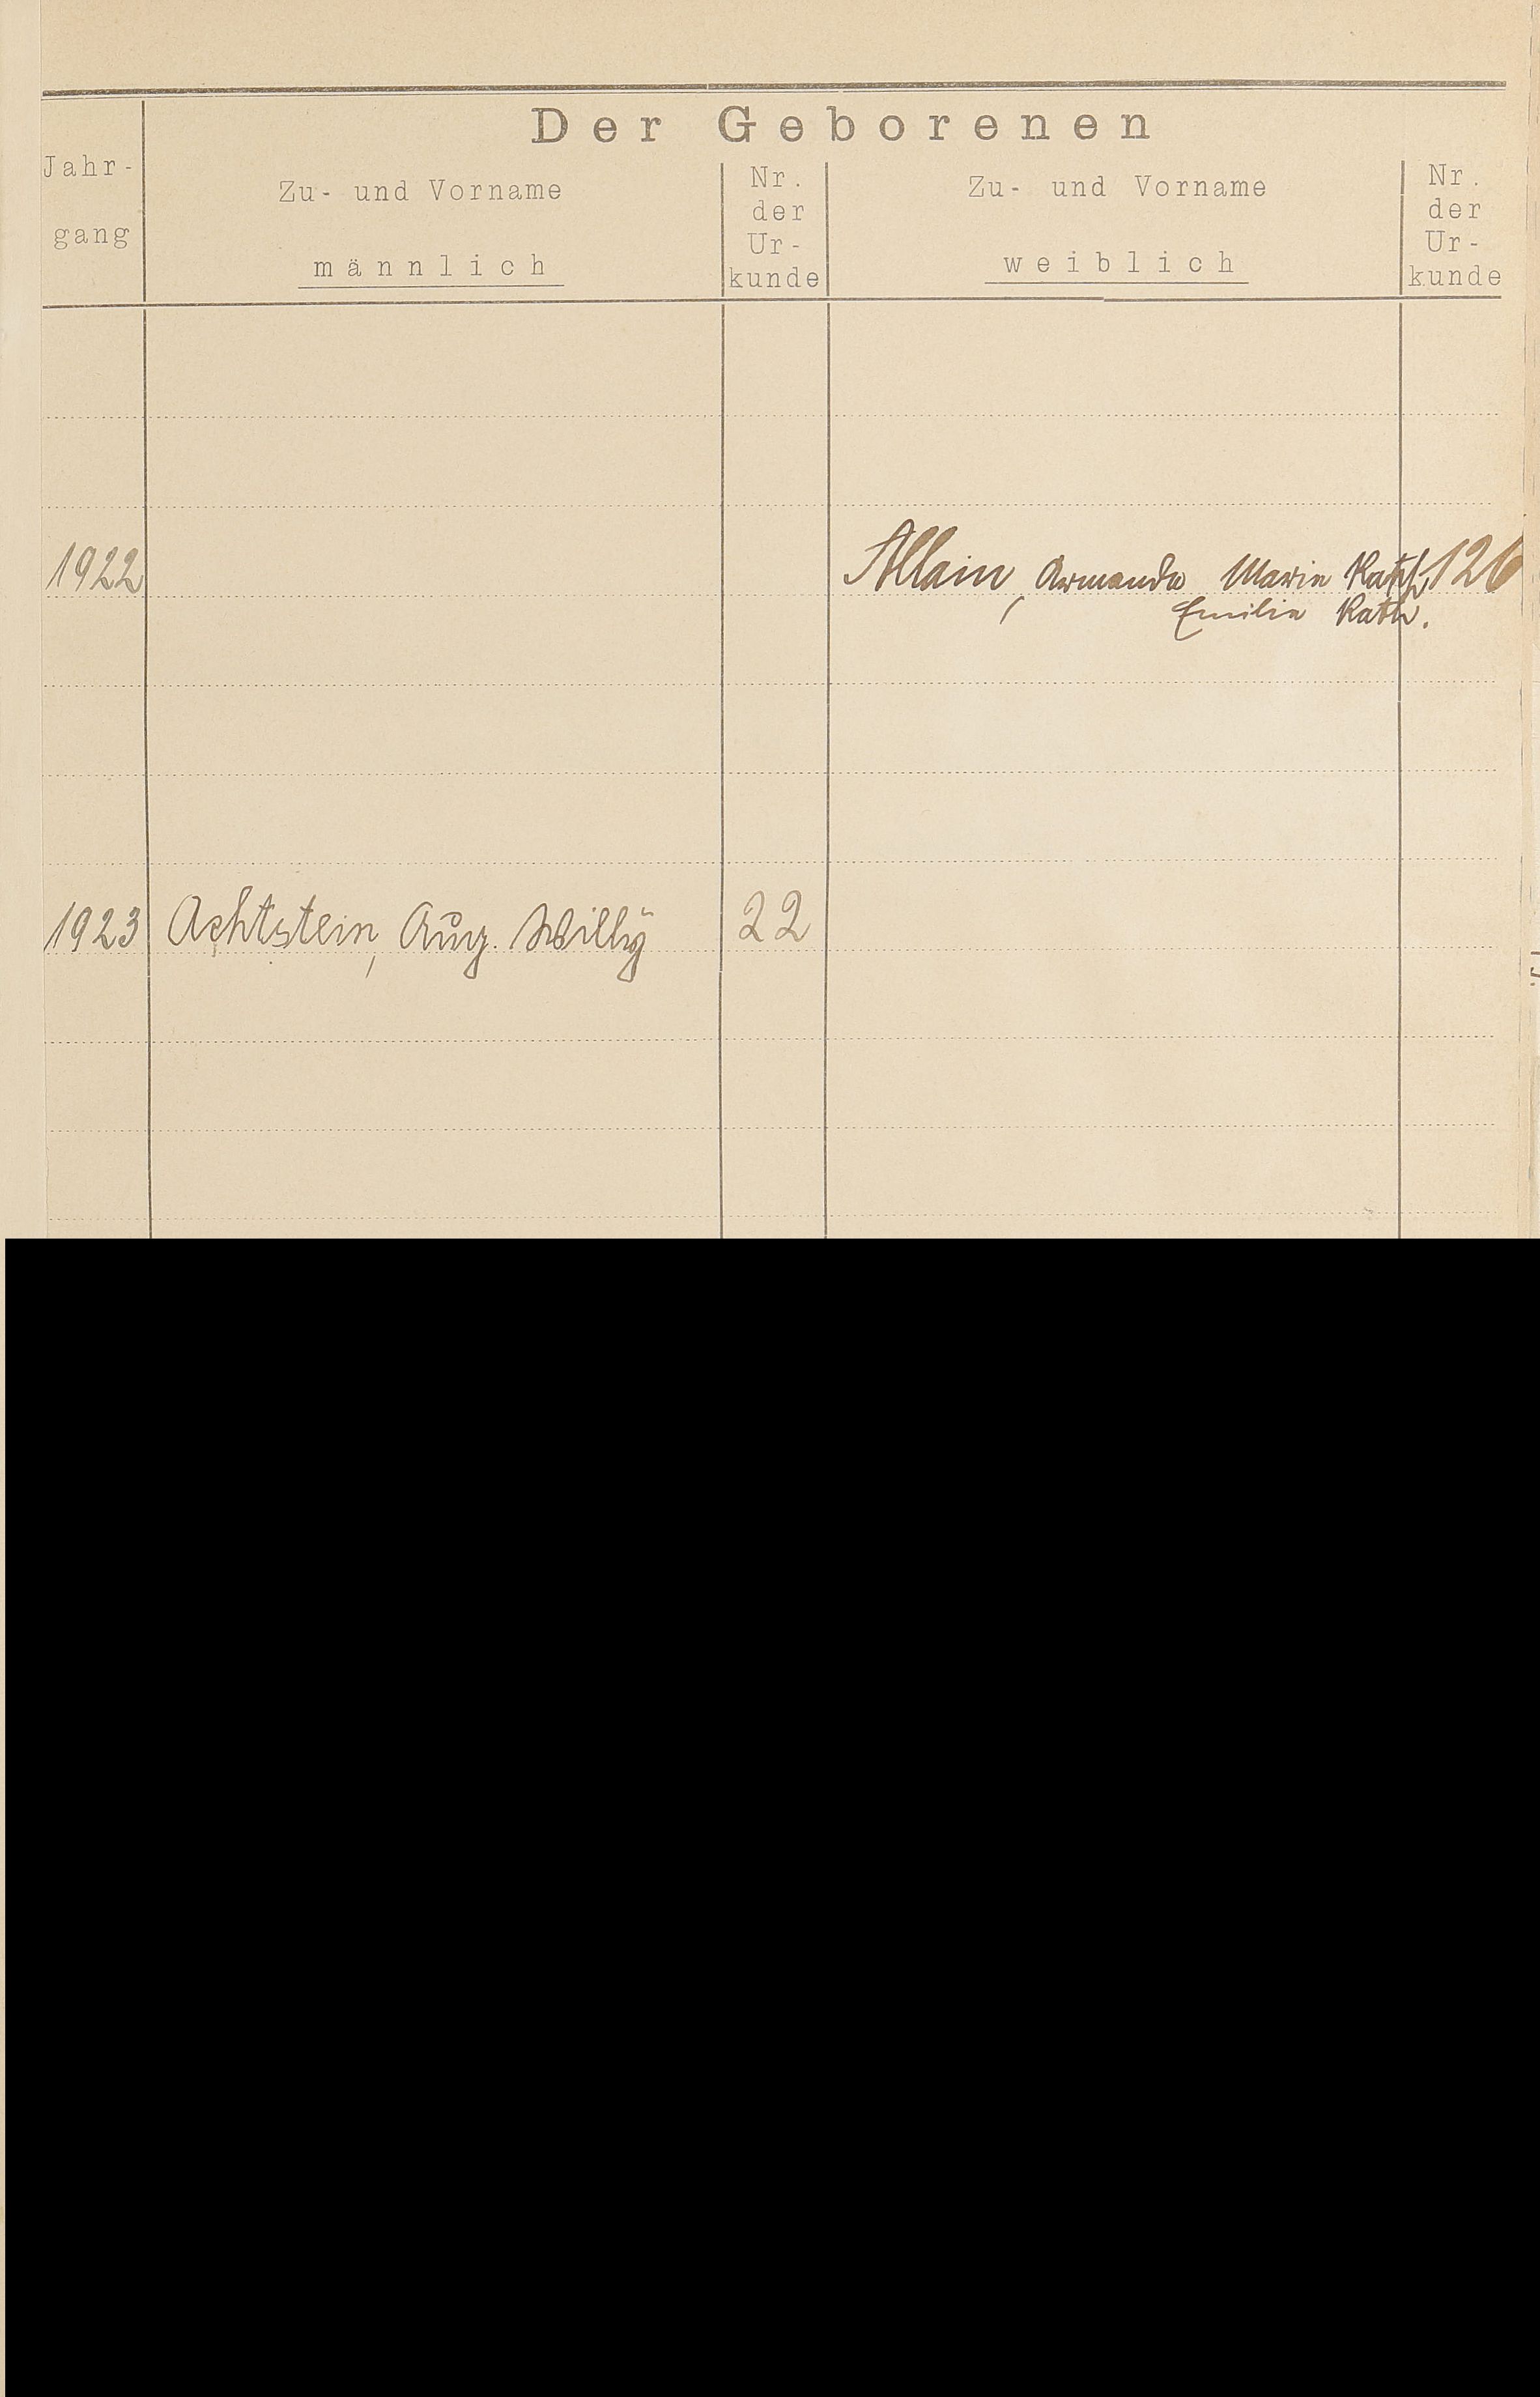 Der Geborenen
Jahr-
gang
Zu- und Vorname
männlich
Nr.
der
Ur-
kunde
Zu- und Vorname
weiblich
Nr.
der
Ur-
kunde
1922 Allain, Armanda Maria Kath. 126
Emilia Kath.
1923 Achtstein, Aug. Willy 22